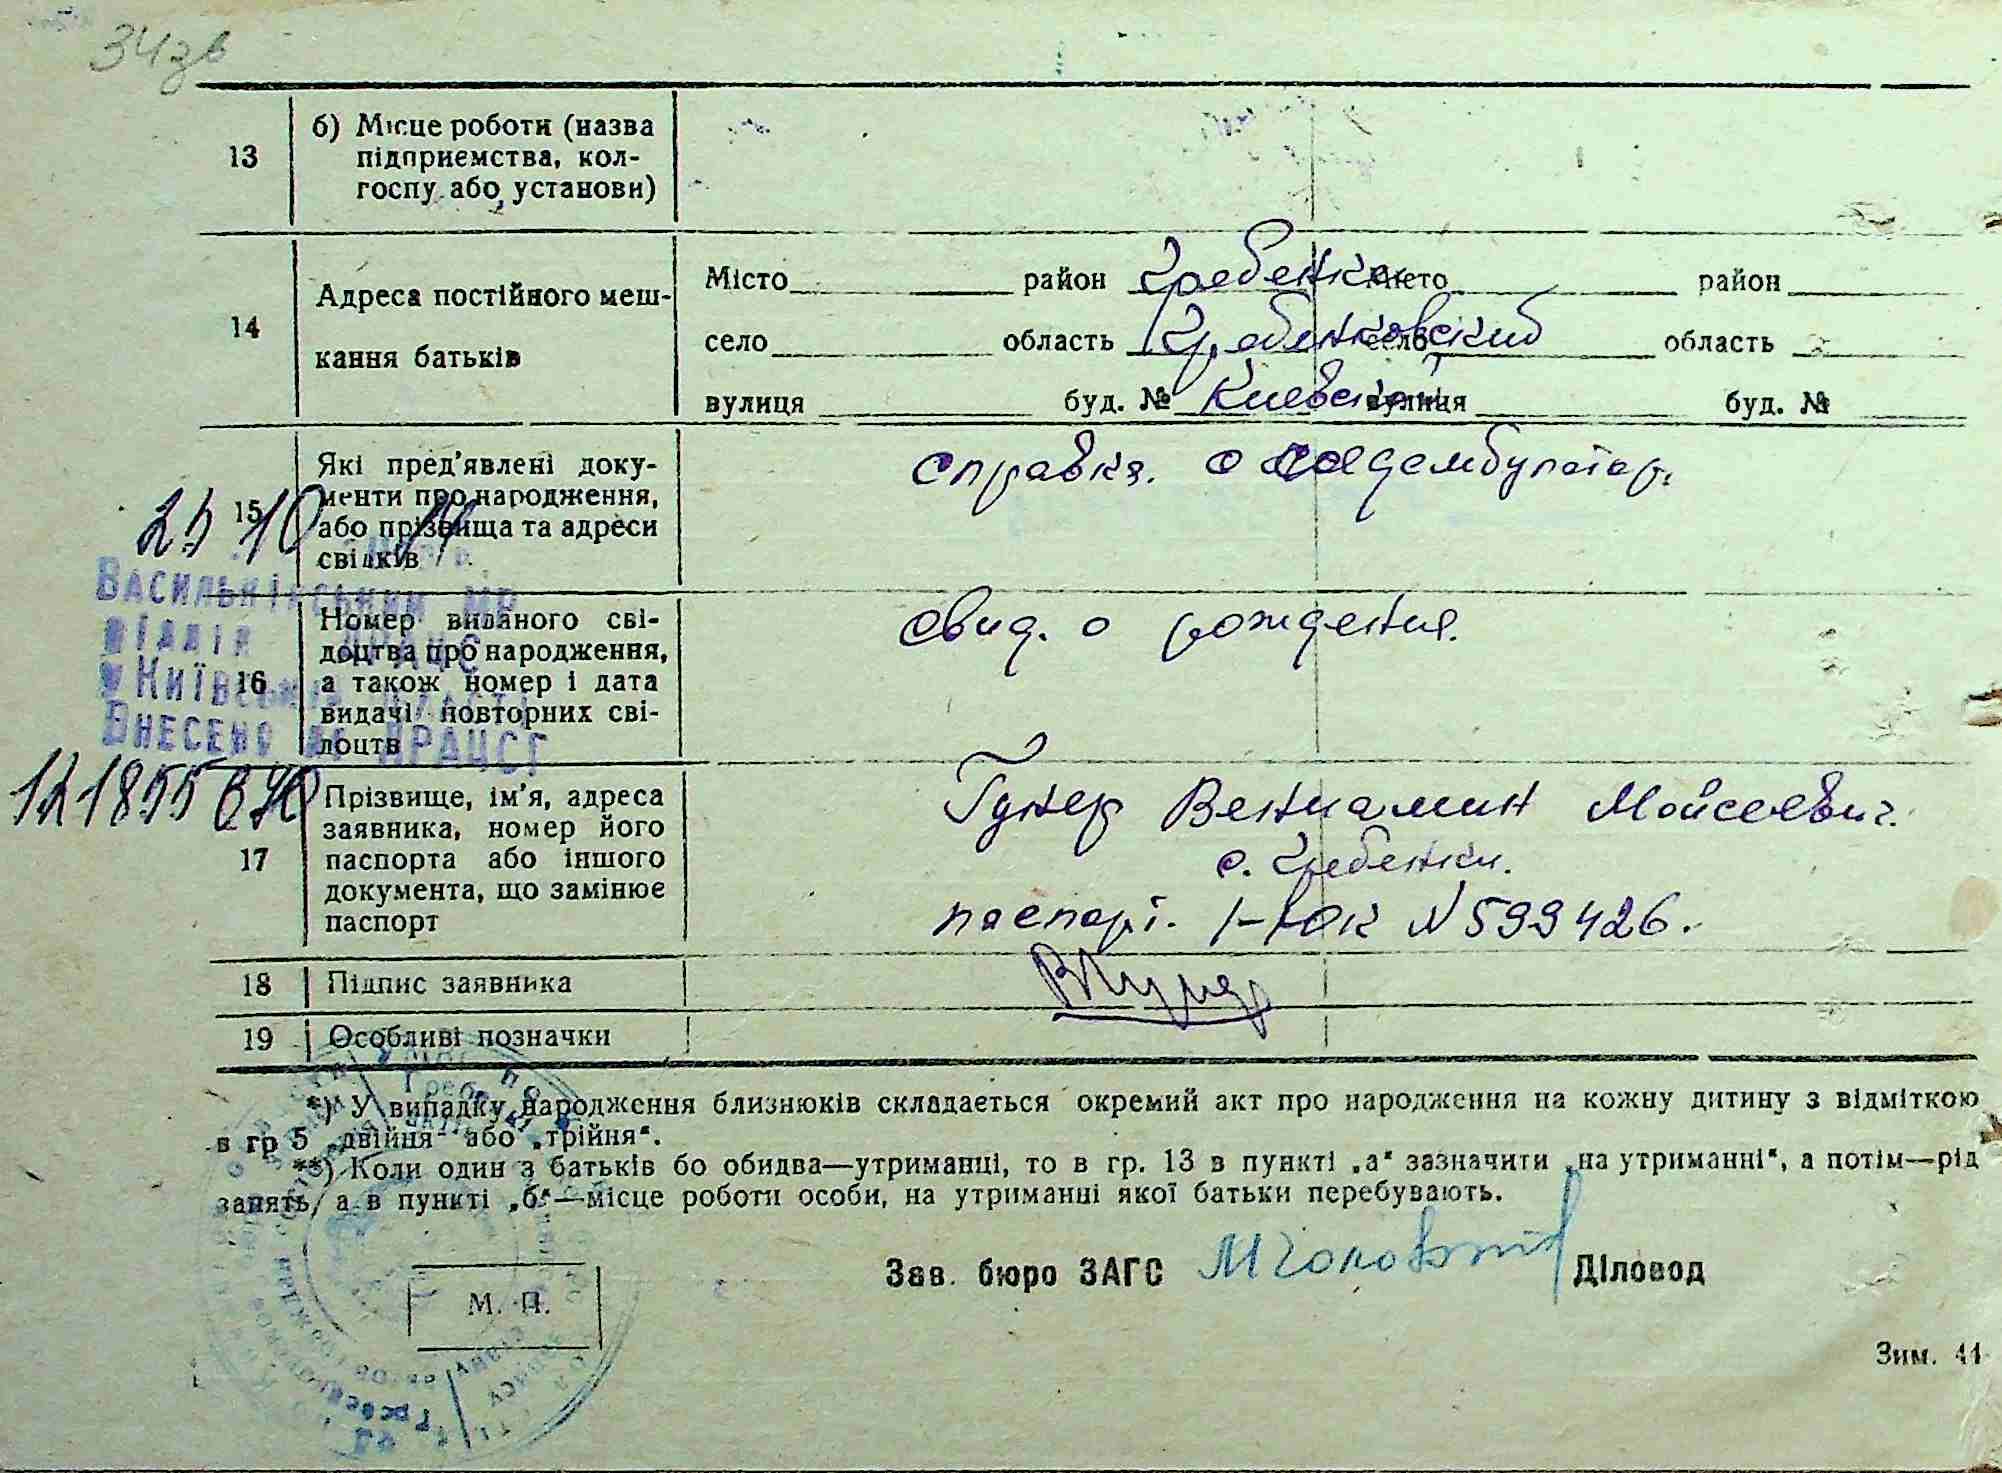 34зв
13
б) Місце роботи (назва
підприємства, кол-
госпу або установи)
14
Адреса постійного меш-
кання батьків
Місто район Гребенки Місто район
село область Гребенковский село область
вулиця буд. № Киевской вулиця буд. №
15
Які пред'явлені доку-
менти про народження,
або прізвища та адреси
свідків
справка. о
25 10
Васильківський МР
відділ ДРАЦС
у Київській області
Внесено до ДРАЦСГ
16
Номер виданого сві-
доцтва про народження,
а також номер і дата
видачі повторних сві-
доцтв
свид. о рождения.
17
Прізвище, ім'я, адреса
заявника, номер його
паспорта або іншого
документа, що замінює
паспорт
Гунер Вениамин Мойсеевич.
с. Гребенки.
паспорт. N 599426.
18 Підпис заявника
19 Особливі позначки
*) У випадку народження близнюків складається окремий акт про народження на кожну дитину з відміткою
в гр 5 „двійня“ або „трійня“.
**) Коли один з батьків бо обидва—утриманці, то в гр. 13 в пункті „а“ зазначити „на утриманні“, а потім—рід
занять, а в пункті „б“—місце роботи особи, на утриманні якої батьки перебувають.
Зав. бюро ЗАГС Діловод
М. П.
Зим. 44